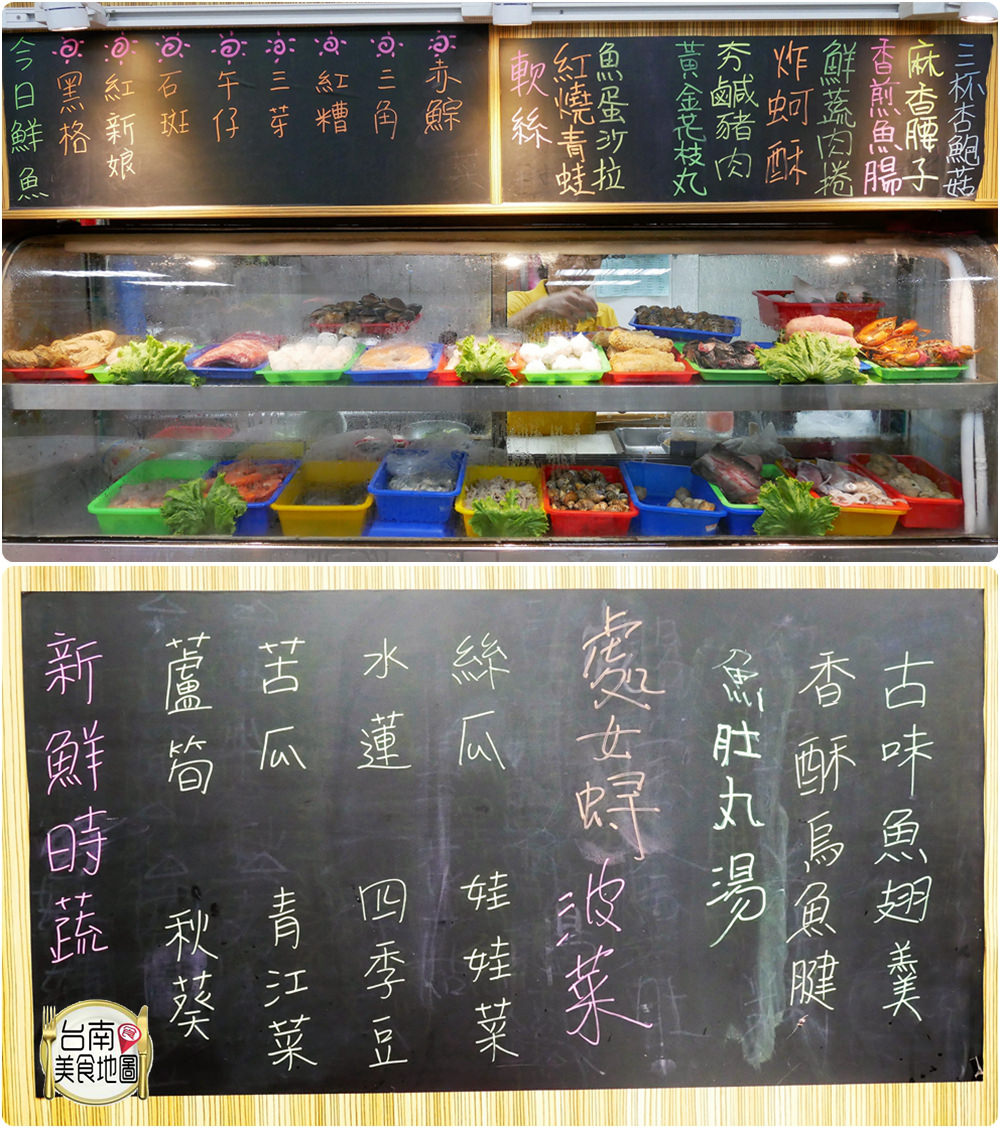 三杯杏鮑菇
麻香腰子
香煎魚腸
鮮蔬肉捲
炸蚵酥
夯鹹豬肉
黃金花枝丸
魚蛋沙拉
紅燒青蛙
軟絲
赤鯮
三角
紅糟
三芽
午仔
石斑
紅新娘
黑格
今日鮮魚
古味魚翅羹
香酥烏魚腱
魚肚丸湯
處女蟳
波菜
絲瓜 娃娃菜
水蓮 四季豆
苦瓜 青江菜
蘆筍 秋葵
新鮮時蔬
台南
食
美食地圖